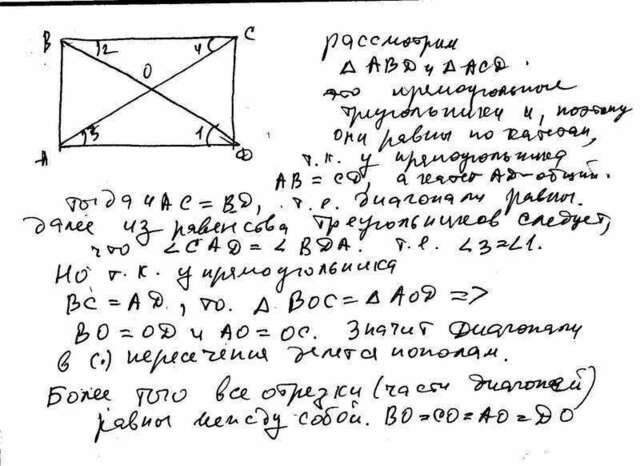 B
C
2
4
O
3
1
A
D
рассмотрим
△ ABD и △ ACD.
это прямоугольные
треугольники и, поэтому
они равны по катетам,
т.к. у прямоугольника
AB = CD, а катет AD – общий.
тогда и AC = BD, т.е. диагонали равны.
далее из равенства треугольников следует,
что ∠CAD = ∠BDA. т.е. ∠3=∠1.
Но т.к. у прямоугольника
BC = AD, то. △ BOC = △ AOD =>
BO = OD и AO = OC. Значит диагонали
в (.) пересечения делятся пополам.
Более того все отрезки (части диагоналей)
равны между собой. BO = CO = AO = DO